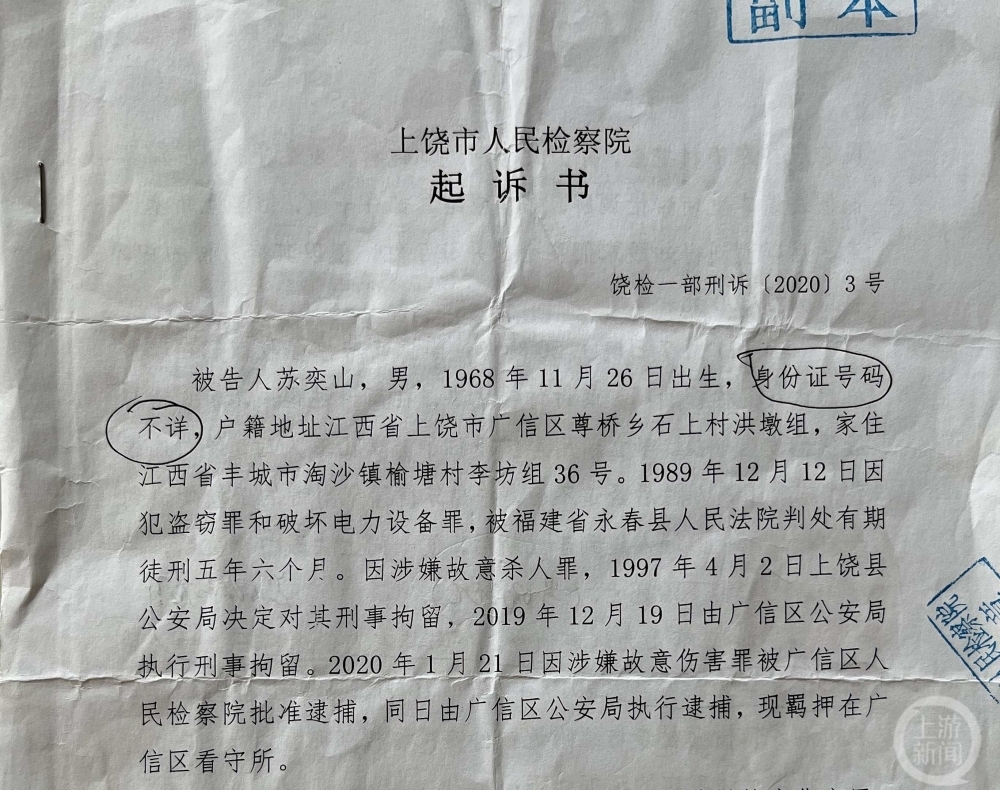 副本
上饶市人民检察院
起诉书
饶检一部刑诉〔2020〕3号
被告人苏奕山，男，1968年11月26日出生，身份证号码
不详，户籍地址江西省上饶市广信区尊桥乡石上村洪墩组，家住
江西省丰城市淘沙镇榆塘村李坊组36号。1989年12月12日因
犯盗窃罪和破坏电力设备罪，被福建省永春县人民法院判处有期
徒刑五年六个月。因涉嫌故意杀人罪，1997年4月2日上饶县
公安局决定对其刑事拘留，2019年12月19日由广信区公安局
执行刑事拘留。2020年1月21日因涉嫌故意伤害罪被广信区人
民检察院批准逮捕，同日由广信区公安局执行逮捕，现羁押在广
信区看守所。
民检察院
上游新闻